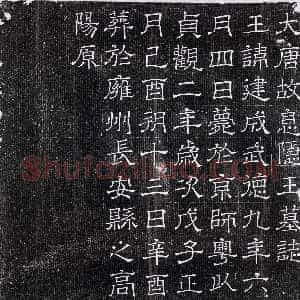 大唐故息隱王墓誌
王諱建成武德九年六
月四日薨於京師粵以
貞觀二年歲次戊子正
月己酉朔十三日辛酉
葬於雍州長安縣之高
陽原
Shufazidian.com